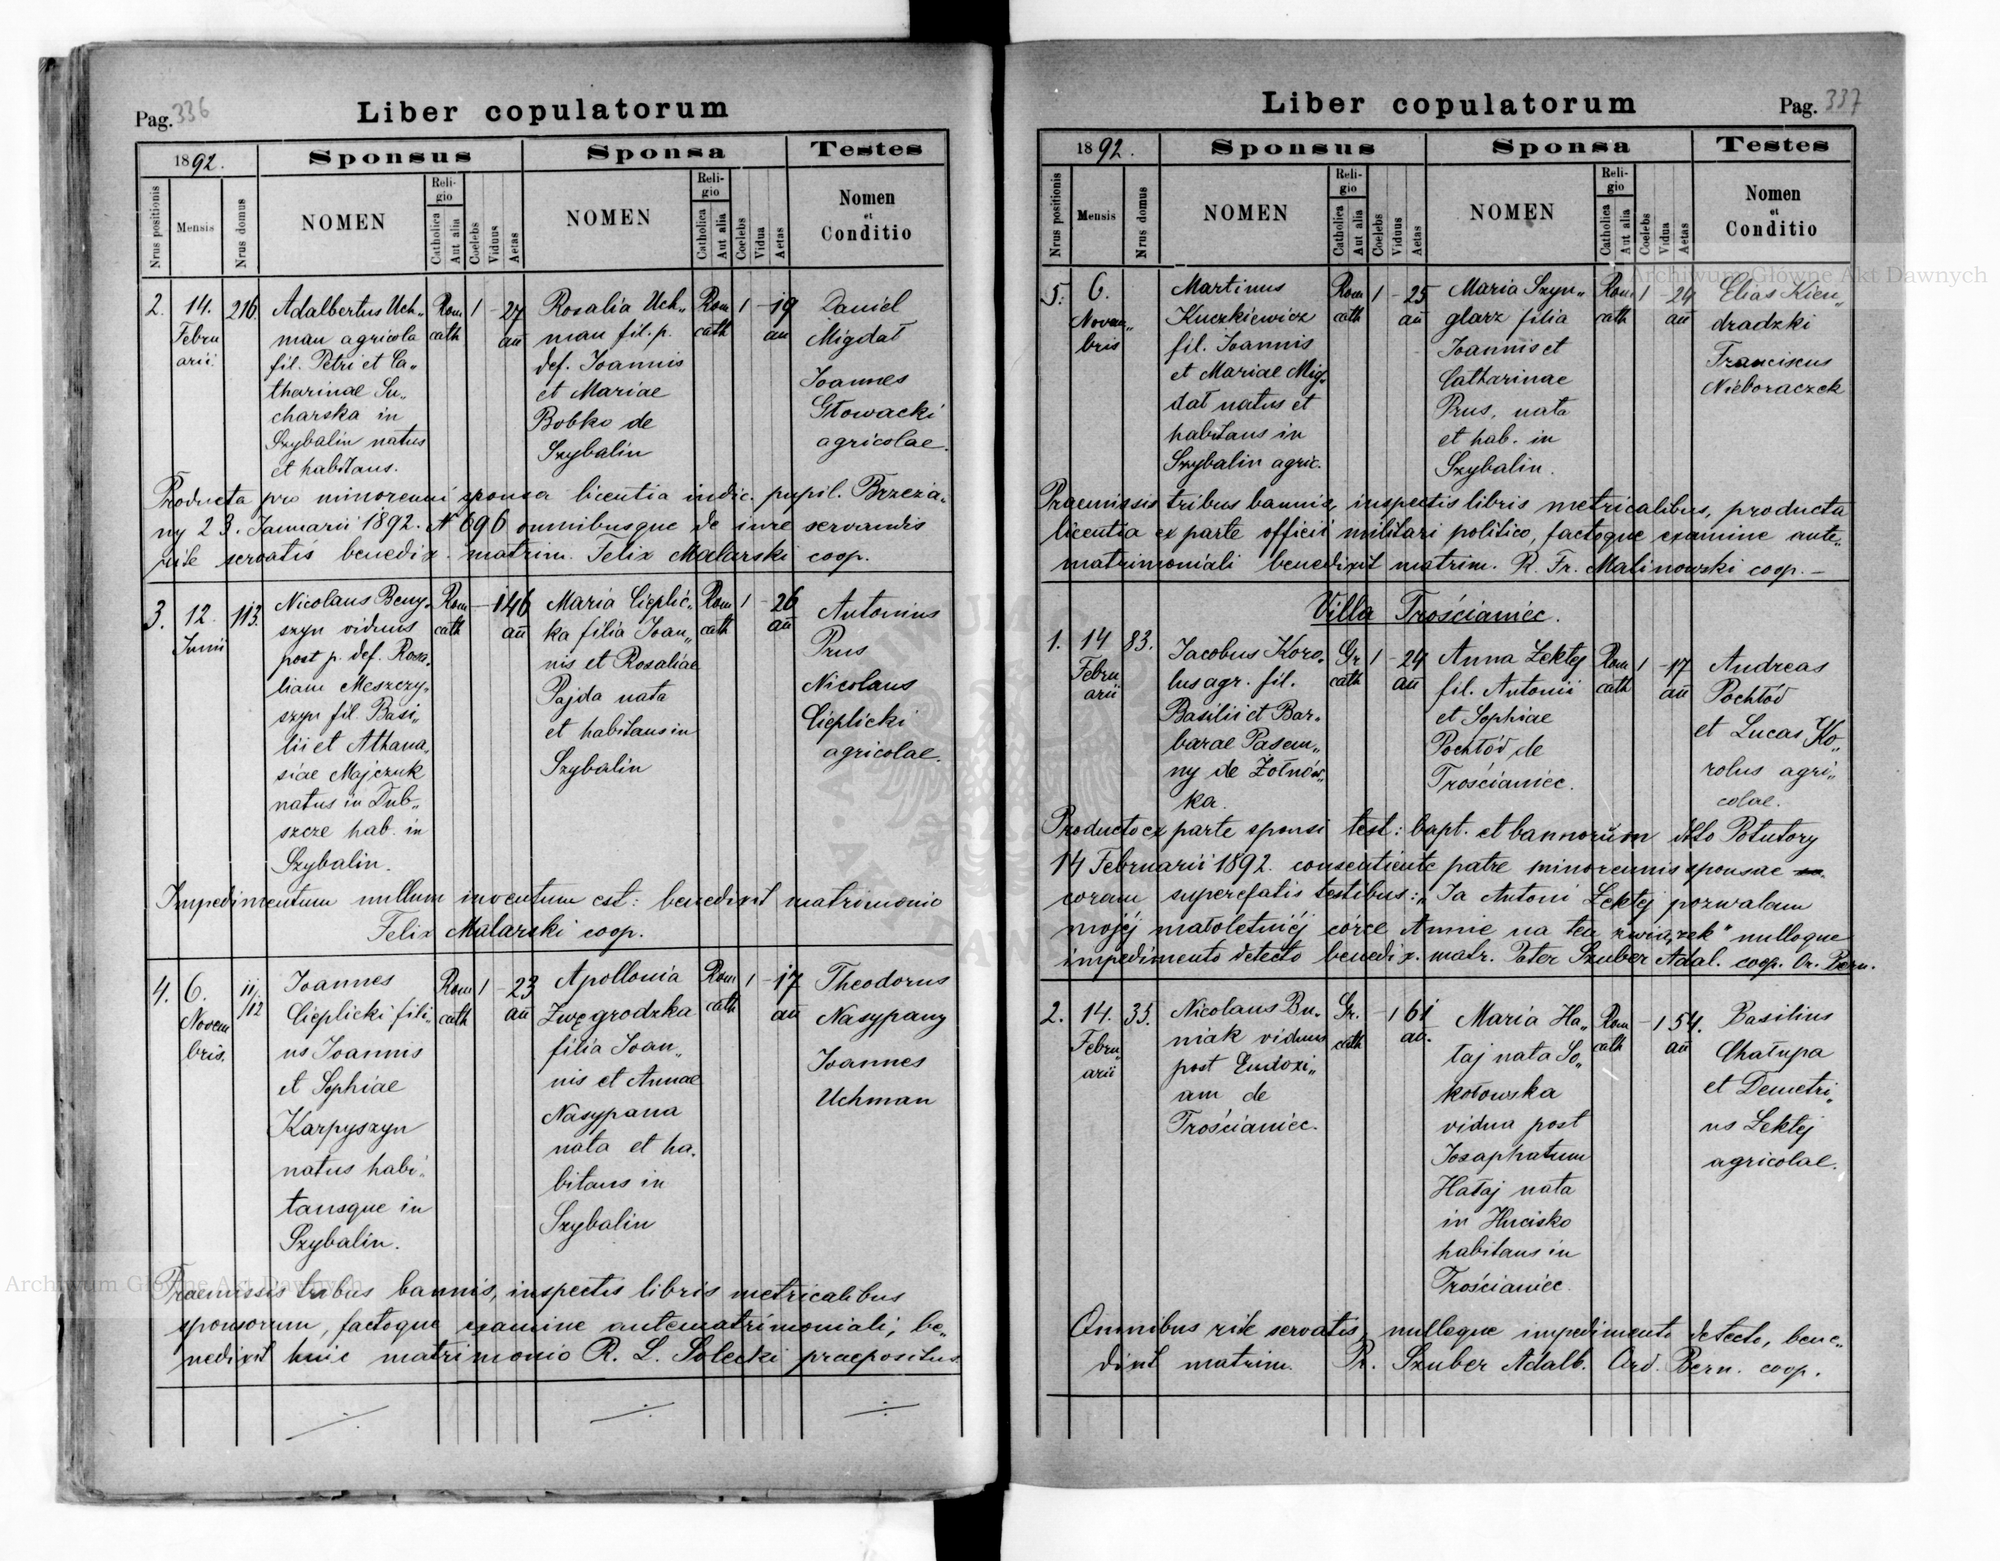 Pag. 336
Liber copulatorum
1892.
Sponsus
Sponsa
Testes
Nrus positionis
Mensis
Nrus domus
NOMEN
Reli-
gio
Catholica
Aut alia
Coelebs
Viduus
Aetas
NOMEN
Reli-
gio
Catholica
Aut alia
Coelebs
Vidua
Aetas
Nomen
et
Conditio
2.
14.
Febru
arii.
216.
Adalbertus Uch„
man agricola
fil. Petri et Ca„
tharinae Su„
charska in
Szybalin natus
et habitans.
Rom
cath
1
- 27
an̄
Rosalia Uch„
man fil. p.
def. Joannis
et Mariae
Bobko de
Szybalin
Rom
cath
1
- 19
an̄
Daniel
Migdał
Joannes
Głowacki
agricolae.
Producta pro minorenni sponsa licentia iudic. pupil. Brzeża„
ny 23. Januarii 1892. N 696 omnibusque de iure servandis
rite servatis benedix. matrim. Felix Malarski coop.
3.
12.
Junii
113.
Nicolaus Beny„
szyn viduus
post p. def. Rosa„
liam Meszczy„
szyn fil. Basi„
lii et Athana„
siae Majczuk
natus in Dub„
szcze hab. in
Szybalin.
Rom
cath
- 1 46
an̄
Maria Cieplic„
ka filia Joan„
nis et Rosaliae
Pajda nata
et habitans in
Szybalin
Rom
cath
1
- 26
an̄
Antonius
Prus
Nicolaus
Cieplicki
agricolae.
Impedimentum nullum inventum est: benedixit matrimonio
Felix Malarski coop.
4.
6.
Novem
bris.
11/12
Joannes
Cieplicki fili„
us Joannis
et Sophiae
Karpyszyn
natus habi„
tansque in
Szybalin.
Rom
cath
1
- 23
an̄
Apollonia
Zwęgrodzka
filia Joan„
nis et Annae
Nasypana
nata et ha„
bitans in
Szybalin
Rom
cath
1
- 17
an̄
Theodorus
Nasypany
Joannes
Uchman
Praemissis tribus bannis, inspectis libris metricalibus
sponsorum, factoque examine antematrimoniali, be„
nedixit huic matrimonio R. L. Solecki praepositus
Liber copulatorum
Pag. 337
1892.
Sponsus
Sponsa
Testes
Nrus positionis
Mensis
Nrus domus
NOMEN
Reli-
gio
Catholica
Aut alia
Coelebs
Viduus
Aetas
NOMEN
Reli-
gio
Catholica
Aut alia
Coelebs
Vidua
Aetas
Nomen
et
Conditio
5.
6.
Novem„
bris
Martinus
Kuczkiewicz
fil. Joannis
et Mariae Mig„
dał natus et
habitans in
Szybalin agric.
Rom
cath
1
- 25
an̄
Maria Szyn„
glarz filia
Joannis et
Catharinae
Prus, nata
et hab. in
Szybalin.
Rom
cath
1
- 24
an̄
Elias Kien„
dradzki
Franciscus
Nieboraczek
Praemissis tribus bannis, inspectis libris metricalibus, producta
licentia ex parte officii militari politico, factoque examine ante„
matrimoniali benedixit matrim. R. Fr. Malinowski coop. —
Villa Trościaniec.
1.
14
Febru
arii
83.
Jacobus Koro„
lus agr. fil.
Basilii et Bar„
barae Pasem„
ny de Żołnów„
ka.
Gr
cath
1
- 24
an̄
Anna Lektej
fil. Antonii
et Sophiae
Pochłód de
Trościaniec.
Rom
cath
1
- 17
an̄
Andreas
Pochłód
et Lucas Ko„
rolus agri„
colae.
Producto ex parte sponsi test: bapt. et bannorum ddto Potutory
14 Februarii 1892. consentiente patre minorennis sponsae
coram superefatis testibus: „Ja Antoni Lektej pozwalam
mojéj małoletniéj córce Annie na ten związek" nulloque
impedimento detecto benedix. matr. Pater Szuber Adal. coop. Or. Bern.
2.
14.
Febru
arii
35.
Nicolaus Bu„
niak viduus
post Eudoxi„
am de
Trościaniec.
Gr.
cath
- 1 61
an̄.
Maria Ha„
łaj nata So„
kołowska
vidua post
Josaphatum
Hałaj nata
in Hucisko
habitans in
Trościaniec.
Rom
cath
- 1 54.
an̄
Basilius
Chałupa
et Demetri„
us Lektej
agricolae.
Omnibus rite servatis, nulloque impedimento detecto, bene„
dixit matrim. Pr. Szuber Adalb. Ord. Bern. coop.
Archiwum Główne Akt Dawnych
Archiwum Główne Akt Dawnych